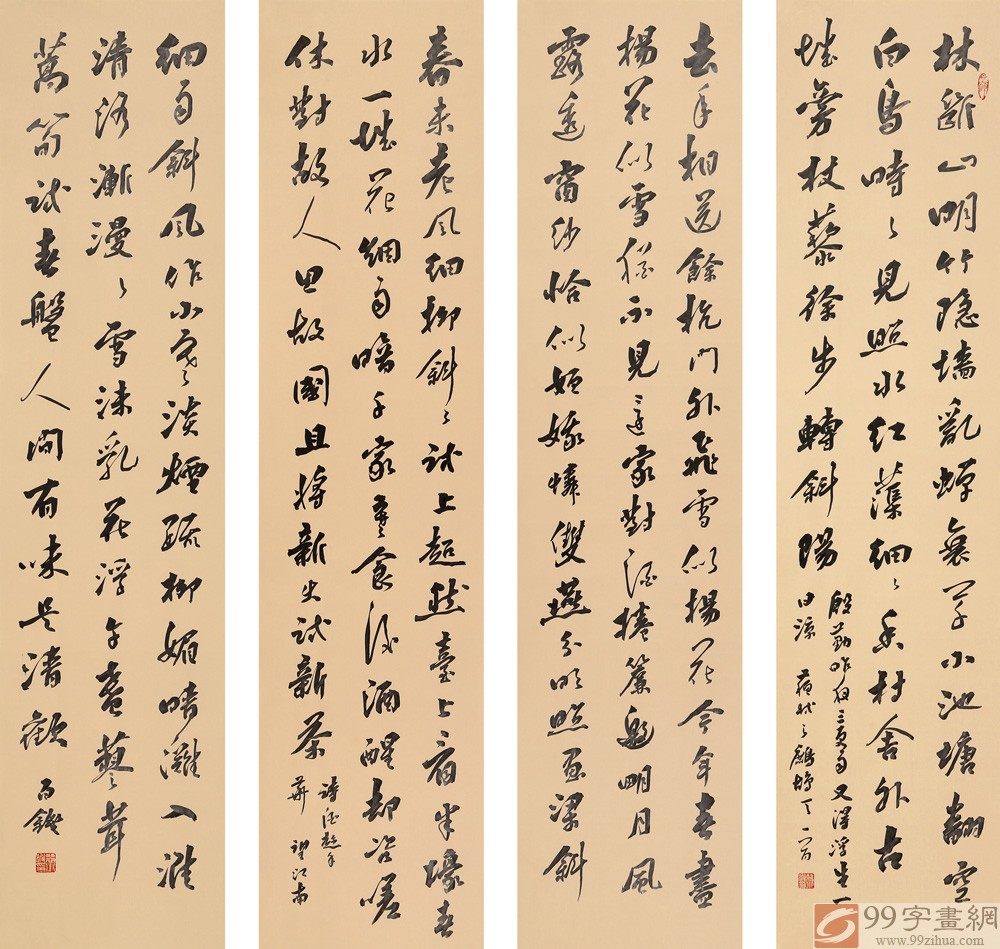 林斷山明竹隱墙亂蟬衰草小池塘翻空
白鳥時々見照水紅蕖細々香村舍外古
城旁杖藜徐步轉斜陽
殷勤昨夜三更雨又得浮生一
日涼 蘇軾之鷓鴣天
去年相送餘杭門外飛雪似楊花今年春盡
楊花似雪猶不見還家對酒捲簾邀明月風
露透窗紗恰似姮娥憐雙燕分明照畫梁斜
春未老風細柳斜々試上超然臺上看半壕春
水一城花煙雨暗千家寒食後酒醒却咨嗟
休對故人思故國且將新火試新茶
詩酒趁年
華 望江南
細雨斜風作小寒淡煙疏柳媚晴灘入淮
清洛漸漫々雪沫乳花浮午盞蓼茸
蒿筍試春盤人間有味是清歡
99字畫網
www.99zihua.com